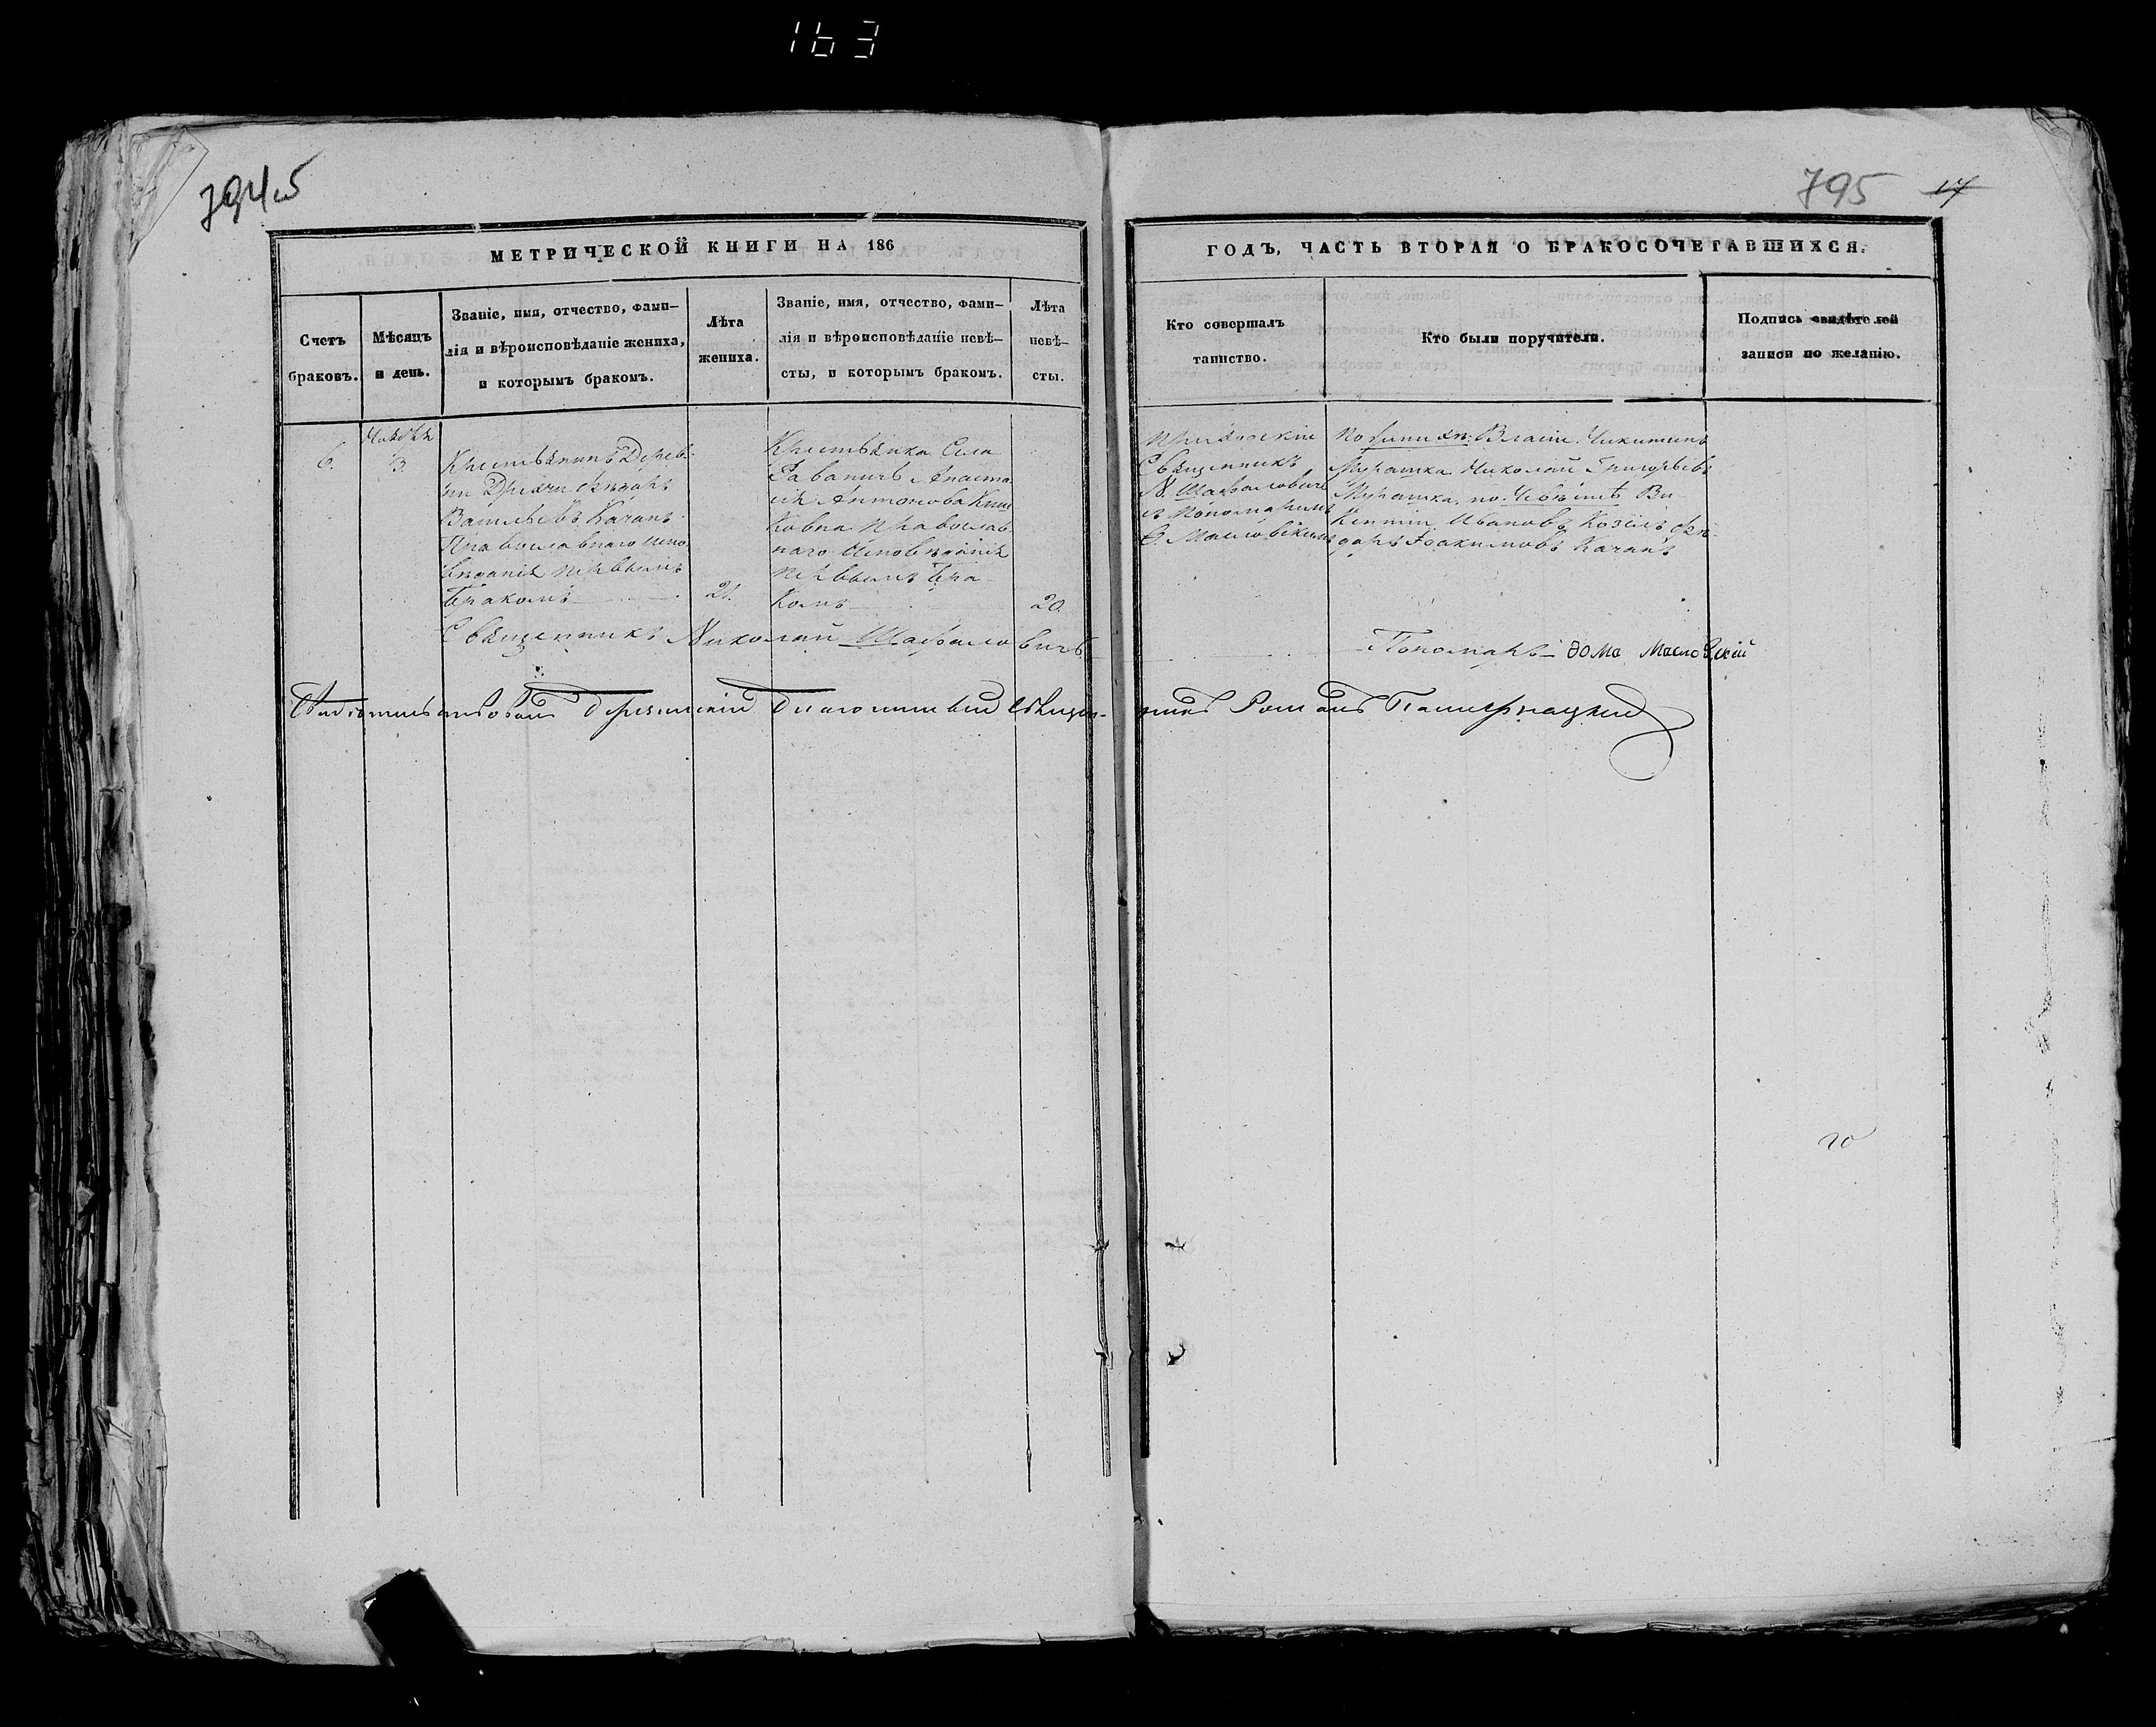 163
794об
795 17
МЕТРИЧЕСКОЙ КНИГИ НА 186
ГОДЪ, ЧАСТЬ ВТОРАЯ О БРАКОСОЧЕТАВШИХСЯ.
Счетъ
браковъ.
Мѣсяцъ
и день.
Званіе, имя, отчество, фами-
лія и вѣроисповѣданіе жениха,
и которымъ бракомъ.
Лѣта
жениха.
Званіе, имя, отчество, фами-
лія и вѣроисповѣданіе невѣ-
сты, и которымъ бракомъ.
Лѣта
невѣ-
сты.
Кто совершалъ
таинство.
Кто были поручители.
Подпись свидѣтелей
записи по желанію.
6.
Ноября
3.
Крестьянинъ Дерев-
ни
Васильевъ Качанъ
Православнаго испо
вѣданія первымъ
бракомъ
21.
Крестьянка Села
Анаста
сія Антонова
Православ
наго Исповѣданія
первымъ бра
комъ
20.
Приходскій
Священникъ
Н. Шафаловичъ
съ Пономаремъ
Масловскимъ
По женихѣ: Власій Никитинъ
Мурашка Николай Григорьевъ
Мурашка, по невѣстѣ Ви
кентій Ивановъ Козелъ Фео-
доръ Іоакимовъ Качанъ
Священникъ Николай Шафаловичъ
Пономарь Фома Масловскій
Свидѣтельствовалъ Благочинный Священ-
никъ Романъ